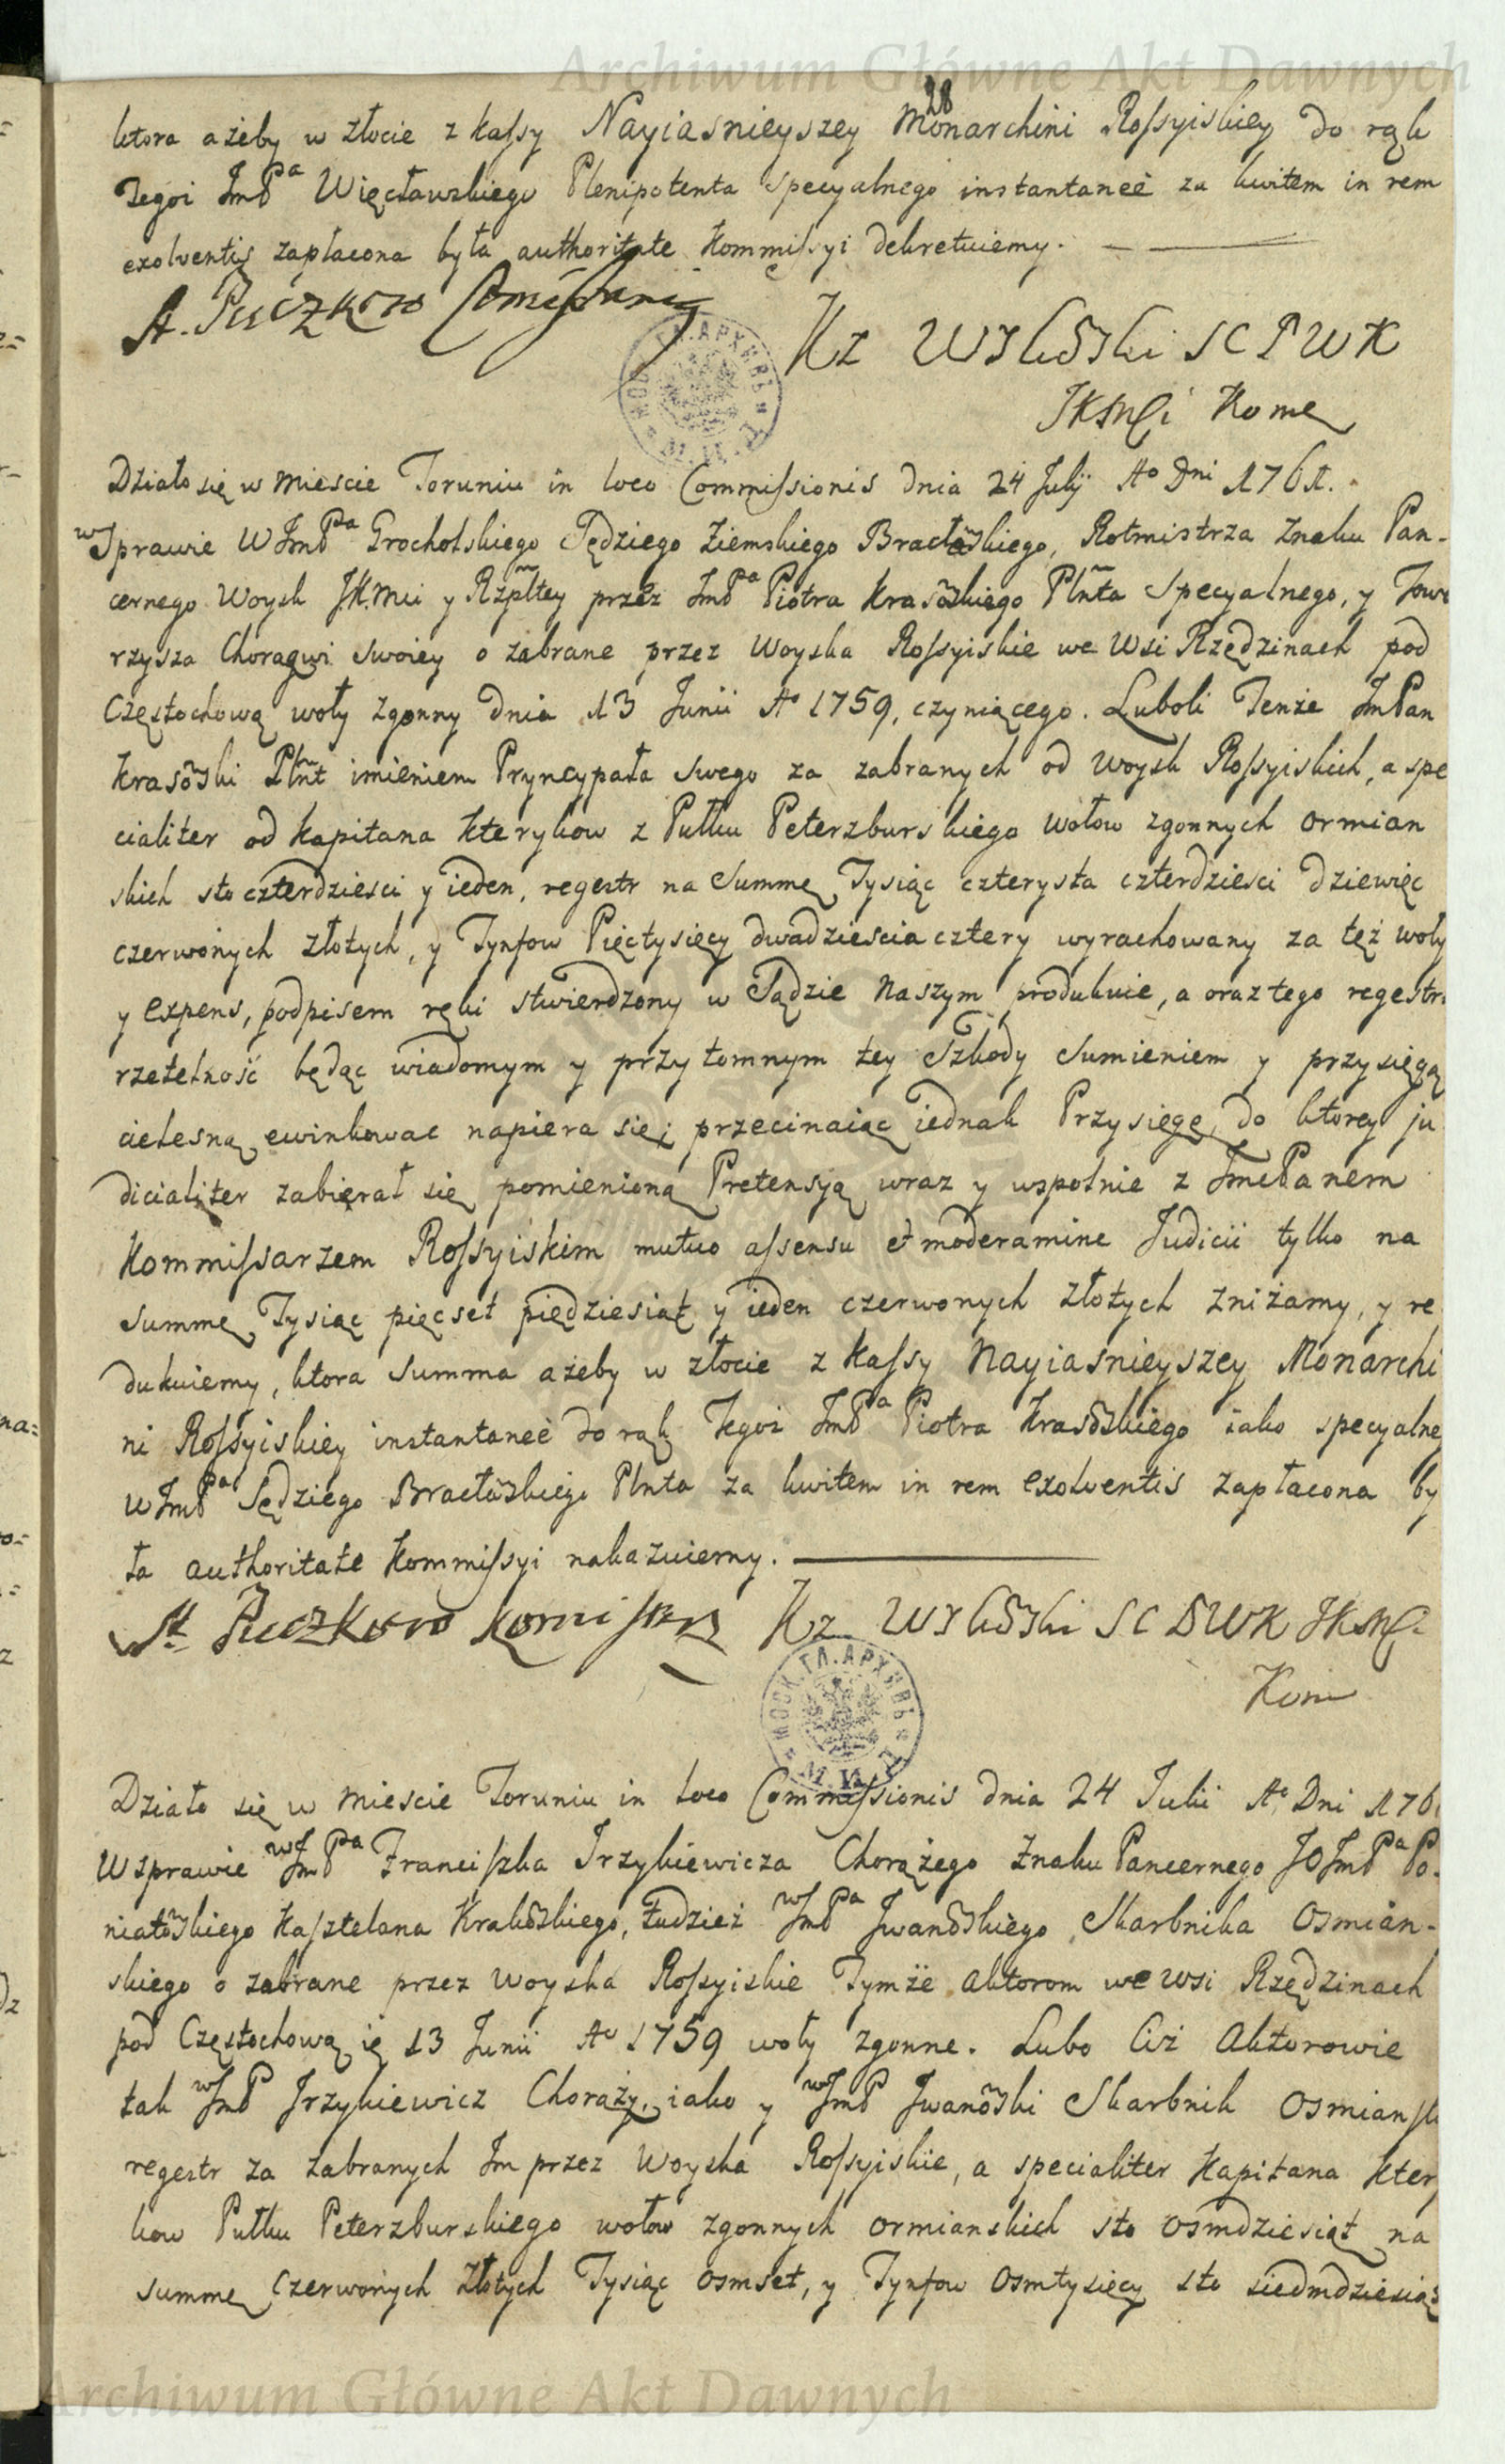 Archiwum Główne Akt Dawnych
28
ktora ażeby w złocie z kassy Nayiasnieyszey Monarchini Rossyiskiey do rąk
Tegoi ImPa Więcławskiego Plenipotenta specyalnego instantaneè za kwitem in rem
exolventis zapłacona była authoritate Kommissyi dekretuiemy.
Działo się w Miescie Toruniu in loco Commissionis dnia 24 Julij Ao Dni 1761.
w Sprawie WJmPa Grocholskiego Sędziego Ziemskiego Bracłaskiego, Rotmistrza Znaku Pan-
cernego Woysk JKMci y Rzpltey przez JmPa Piotra Krasoskiego Plnta Specyalnego, y Towa
rzysza Chorągwi swoiey o zabrane przez Woyska Rossyiskie we Wsi Rzędzinach pod
Częstochową woły zgonny dnia 13 Junii Ao 1759, czyniącego. Luboli Tenże JmPan
Krasoski Plnt imieniem Pryncypała swego za zabranych od woysk Rossyiskich, a spe
cialiter od kapitana kterykow z Pułku Peterzburskiego wołow zgonnych ormian
skich sto czterdziesci y ieden, regestr na Summę Tysiąc czterysta czterdziesci dziewięc
czerwonych złotych, y Tynfow Pięctysięcy dwadziescia cztery wyrachowany za też woły
y expens, podpisem ręki stwierdzony w Sądzie Naszym produkuie, a oraz tego regestru
rzetelność będąc wiadomym y przytomnym tey Szkody Sumieniem y przysięgą
cielesną ewinkowac napiera się; przecinaiąc iednak Przysięgę, do ktorey ju
dicialiter zabierał się pomienioną Pretensyą wraz y wspolnie z JmcPanem
Kommissarzem Rossyiskim mutuo assensu et moderamine Judicii tylko na
summę Tysiąc pięcset pięedziesiąt y ieden czerwonych złotych zniżamy, y re
dukuiemy, ktora summa ażeby w złocie z kassy Nayiasnieyszey Monarchi
ni Rossyiskiey instantaneè do rąk Tegoż JmPa Piotra Krasoskiego iako specyalne
WJmPa Sędziego Bracłaskiego Plnta za kwitem in rem exolventis zapłacona by
ła authoritate Kommissyi nakazuiemy.
Działo się w Miescie Toruniu in loco Commissionis dnia 24 Julii Ao Dni 176
W sprawie WJmPa Franciszka Jrzykiewicza Chorążego Znaku Pancernego JOJmPa Po-
niatoskiego Kasztelana Krakoskiego, Tudzież WJmPa Jwanoskiego Skarbnika Osmian-
skiego o zabrane przez woyska Rossyiskie Tymże aktorom we wsi Rzędzinach
pod Częstochową ię 13 Junii Ao 1759 woły zgonne. Lubo Ciż Aktorowie
tak WJmP Jrzykiewicz Chorąży, iako y WJmP Jwanoski Skarbnik Osmiansk
regestr za zabranych Jm przez Woyska Rossyiskie, a specialiter Kapitana Ktery
kow Pułku Peterzburskiego wołow zgonnych ormianskich sto osmdziesiąt na
summę Czerwonych Złotych Tysiąc osmset, y Tynfow Osmtysięcy sto siedmdziesiąt
Archiwum Główne Akt Dawnych